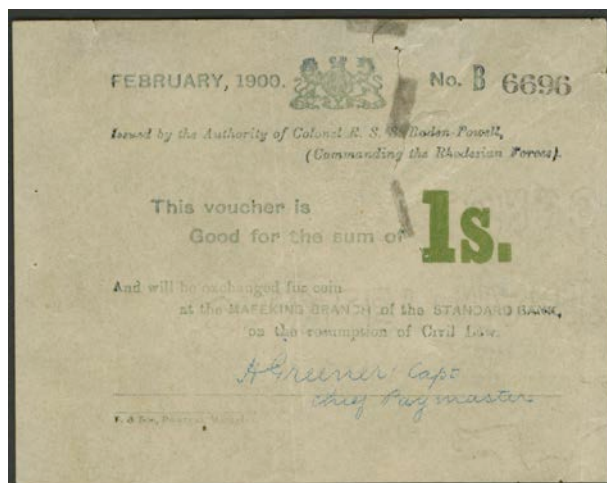 FEBRUARY, 1900. No. B 6696
Issued by the Authority of Colonel R. S. S. Baden-Powell,
(Commanding the Rhodesian Forces).
This voucher is
Good for the sum of 1s.
And will be exchanged for coin
at the MAFEKING BRANCH of the STANDARD BANK,
on the resumption of Civil Law.
H Greener Capt
Chief Paymaster